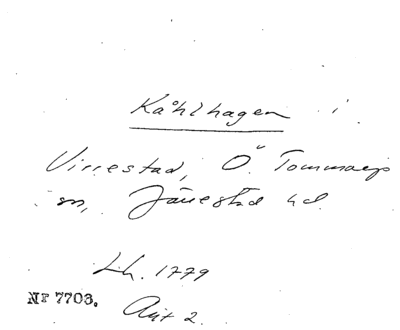 Kåhlhagen i
Virrestad, Ö. Tommarp
sn, Järrestad hd.
Lh. 1779
Akt 2.
Nr 7703.